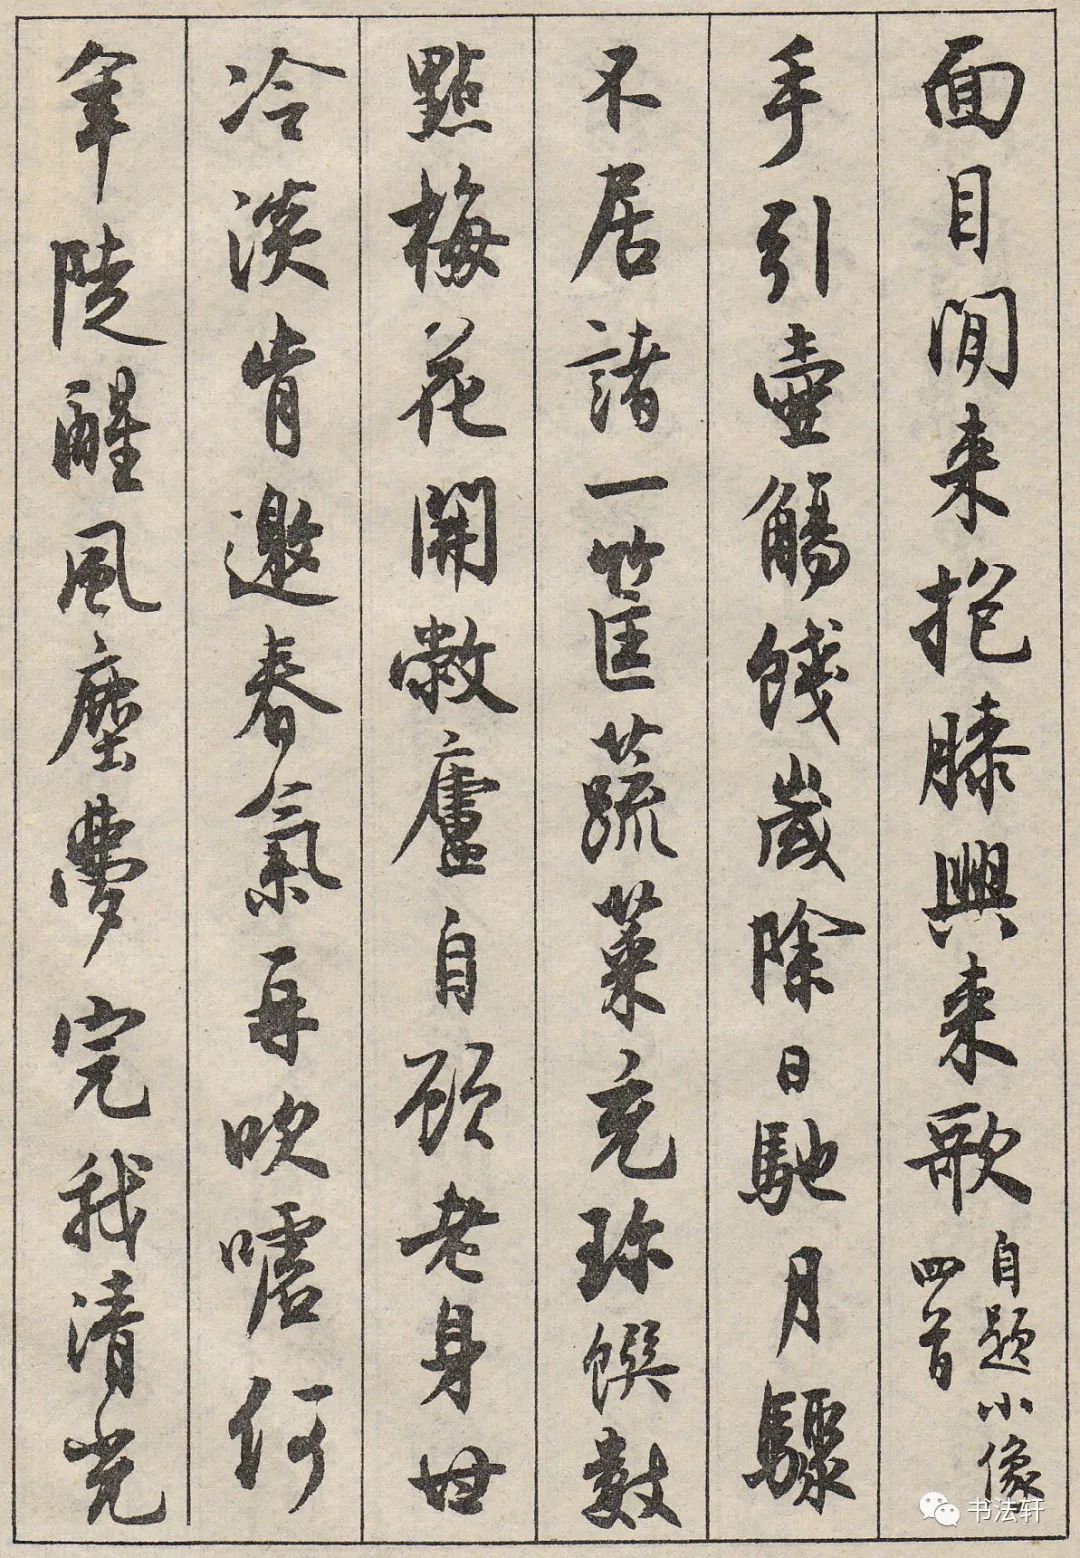 面目閒来抱膝興来歌自題小像四首
手引壺觴餞歲除日馳月驟
不居諸一筐蔬菜充珎饌數
點梅花開敝廬自顧老身世
冷淡肯邀春氣再吹噓何
年陡醒風塵夢完我清光
书法轩